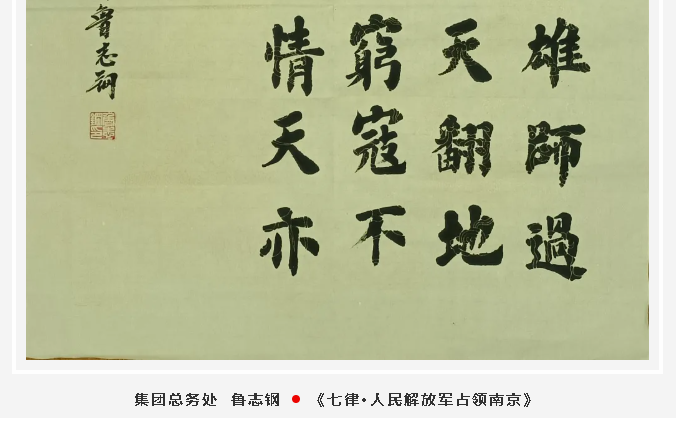 雄師過
天翻地
窮寇不
情天亦
魯志鋼
集团总务处 鲁志钢 ● 《七律·人民解放军占领南京》